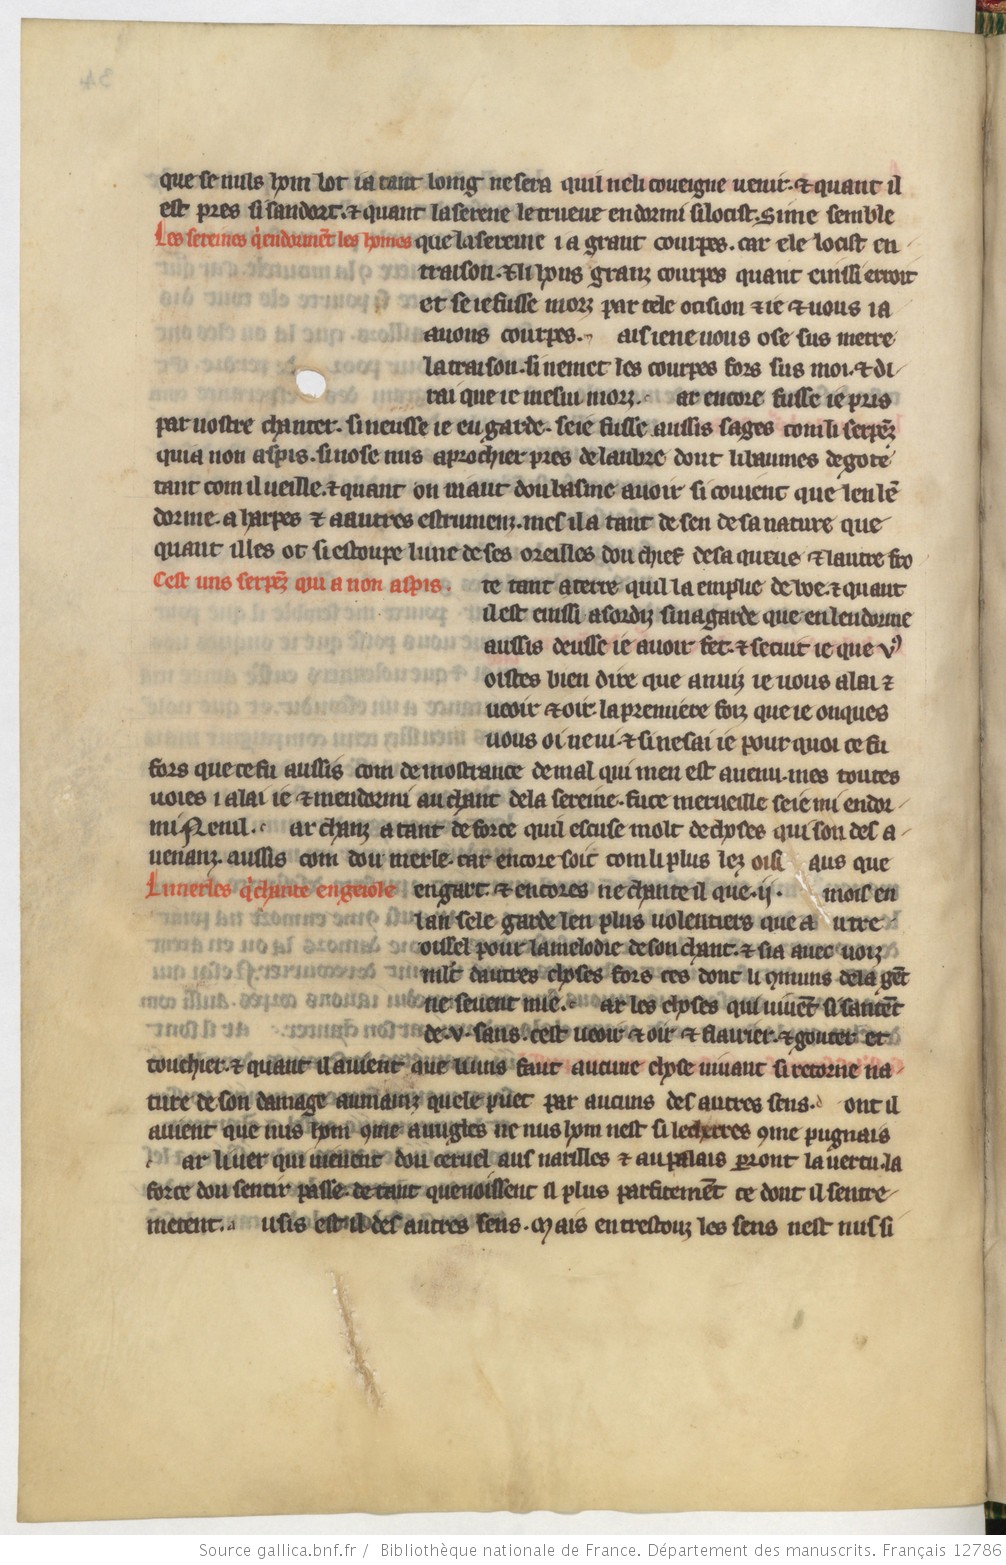 34
que se nuls hom lot ia tant loing ne sera quil neli coveigne venir. ⁊ quant il
est pres si sandort. ⁊ quant la serene le trueve endormi si locist. Si me semble
Les sereines q̄ endorment les homes que la sereine i a grant courpes. car ele locist en
traison. ⁊ li hons granz courpes quant einssi croit
et se ie fusse morz par tele ocision ⁊ ie ⁊ vous i a
avons courpes. ais ie ne vous ose sus metre
la traison. si nemet les courpes fors sus moi. ⁊ di
rai que ie mesui morz. ar encore fusse ie pris
par vostre chanter. si neusse ie eu garde. se ie fusse aussis sages com li serpēz
qui a non aspis. si nose nus aprochier pres de laubre dont li baumes degote
tant com il veille. ⁊ quant on maut dou basme avoir si covient que len lē
dorme. a harpes ⁊ a autres estrumenz. mes il a tant de sen de sa nature que
quant il les ot si estoupe lune de ses oreilles dou chief de sa queue ⁊ lautre fro
Cest uns serpēz qui a non aspis. te tant a terre quil la emplie de boe. ⁊ quant
il est einssi asordiz si na garde que en lendorme
aussis deusse ie avoir fet. ⁊ se cuit ie que v9
oistes bien dire que anviz ie vous alai ⁊
veoir ⁊ oir la premiere foiz que ie onques
vous oi ne vi. ⁊ si ne sai ie pour quoi ce fu
fors que ce fu aussis com demostrance de mal qui men est avenu. mes toutes
voies i alai ie ⁊ mendormi au chant de la sereine. fu ce merveille se ie mi endor
mi Nenil. ar chanz a tant de force quil escuse molt de choses qui son des a
venanz. aussis com dou merle. car encore soit com li plus lez oisi aus que
Li merles q̄ chante en geiole en gart. ⁊ encores ne chante il que .ij. mois en
lan se le garde len plus volentiers que a utre
oissel pour la melodie de son chant. ⁊ si a avec voiz
mlt dautres choses fors ces dont li ꝯmuns de la gēt
ne sevent mie. ar les choses qui vivēt si santēt
de .v. sans. cest veoir ⁊ oir ⁊ flairier. ⁊ gouter et
touchier. ⁊ quant il avient que li uns faut aucune chose vivant si retorne na
ture de son damage au mainz quele puet par aucuns des autres sens. ont il
avient que nus hom ꝯme avugles ne nus hom nest si lecherres ꝯme pugnais
ar li ner qui vienent dou cervel aus narilles ⁊ au palais p̱ ont la vertu. la
force dou sentir passe. de tant quenoissent il plus parfitemēt ce dont il sentre
metent. usis est il des autres sens. Mais entrestouz les sens nest nus si
Source gallica.bnf.fr / Bibliothèque nationale de France. Département des manuscrits. Français 12786